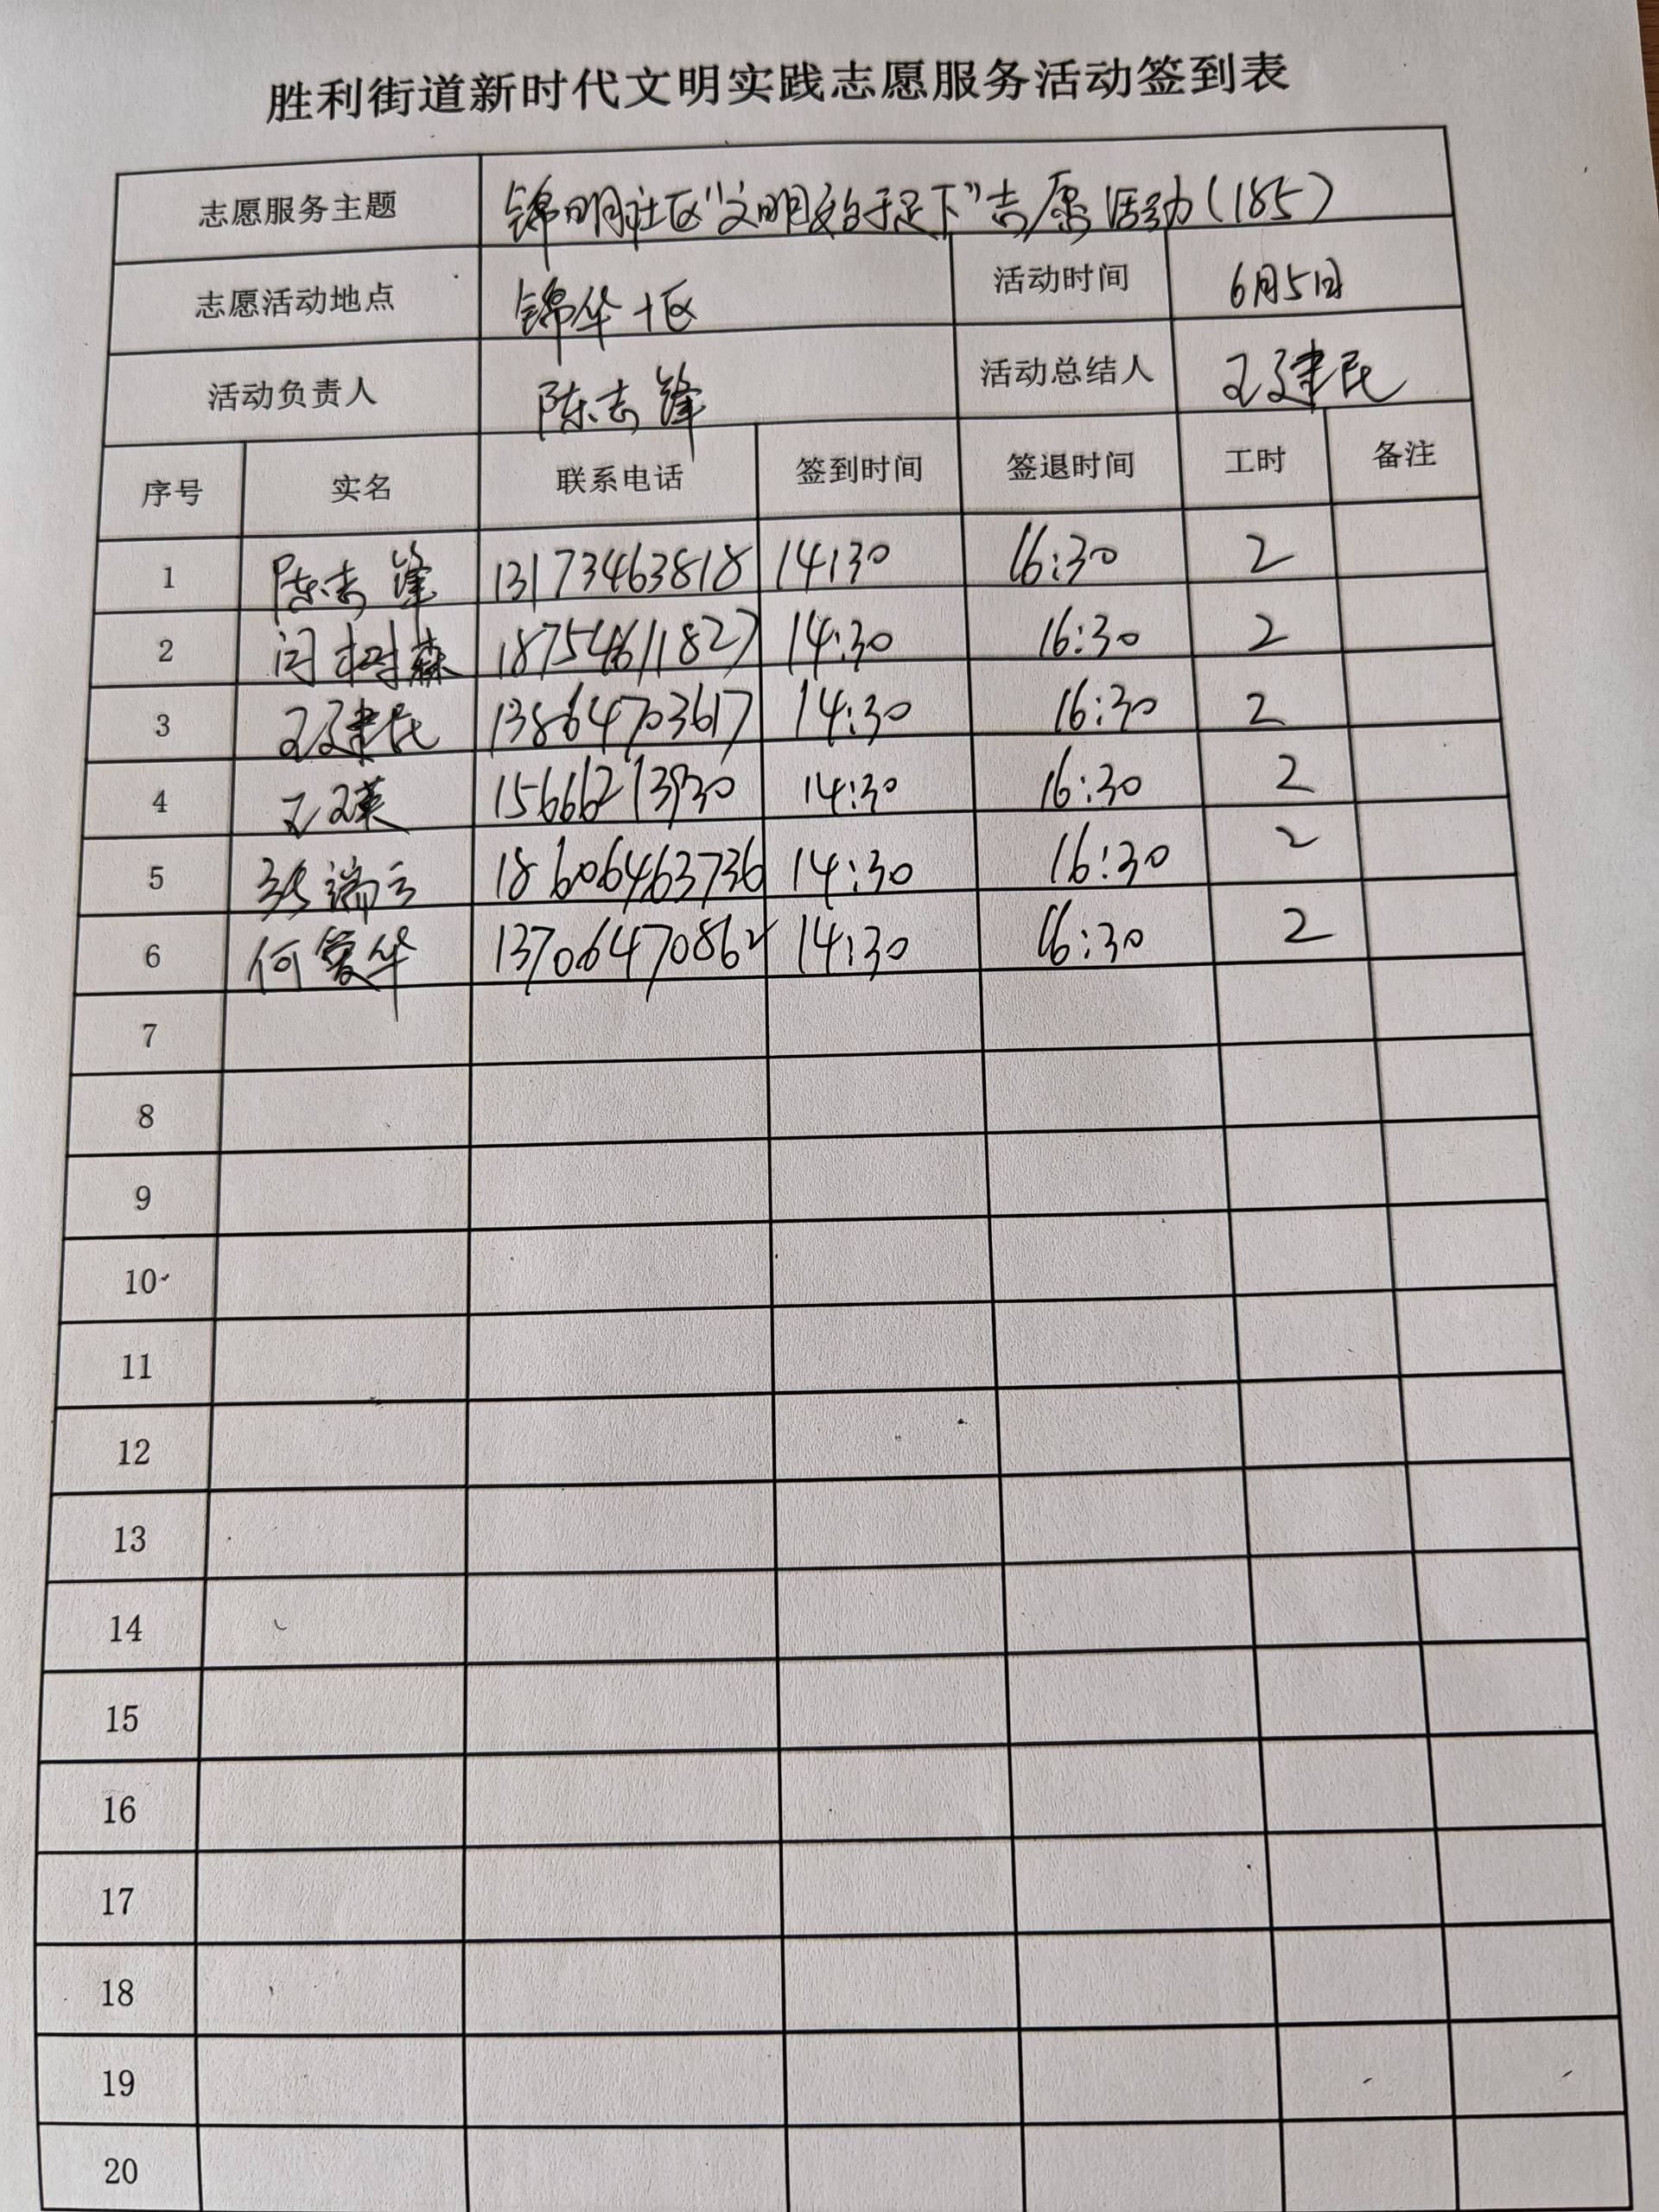 胜利街道新时代文明实践志愿服务活动签到表
志愿服务主题 锦明社区“文明始于足下”志愿活动(185)
志愿活动地点 锦华十区 活动时间 6月5日
活动负责人 陈志锋 活动总结人 王建民
序号 实名 联系电话 签到时间 签退时间 工时 备注
1 陈志锋 13173463818 14:30 16:30 2
2 闫树森 18754611827 14:30 16:30 2
3 王建民 13864703617 14:30 16:30 2
4 王瑛 15666213930 14:30 16:30 2
5 张端云 18606463736 14:30 16:30 2
6 何爱华 13706470862 14:30 16:30 2
7
8
9
10
11
12
13
14
15
16
17
18
19
20